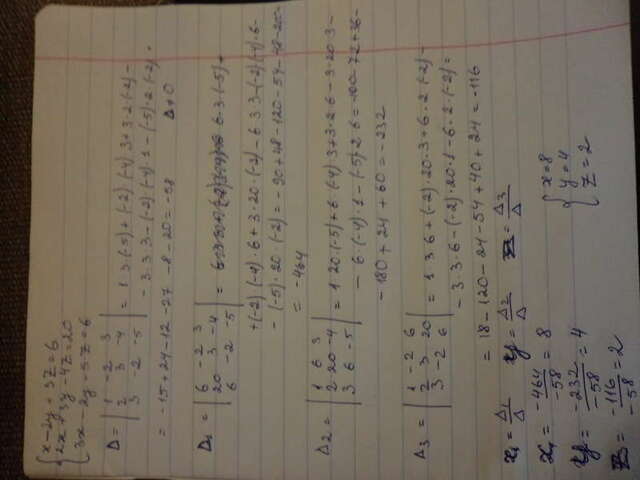 x-2y+3z=6
2x+3y-4z=20
3x-2y-5z=6
Δ = | 1 -2 3 |
| 2 3 -4 |
| 3 -2 -5 | = 1·3·(-5)+(-2)·(-4)·3+3·2·(-2)-
-3·3·3-(-2)·(-4)·1-(-5)·2·(-2)=
= -15+24-12-27-8-20=-58 Δ≠0
Δ₁ = | 6 -2 3 |
| 20 3 -4 |
| 6 -2 -5 | = 6·3·(-5)+
+(-2)·(-4)·6+3·20·(-2)-6·3·3-(-2)·(-4)·6-
-(-5)·20·(-2)=-90+48-120-54-48-200=
= -464
Δ₂ = | 1 6 3 |
| 2 20 -4 |
| 3 6 -5 | = 1·20·(-5)+6·(-4)·3+3·2·6-3·20·3-
-6·(-4)·1-(-5)·2·6=-100-72+36-
-180+24+60=-232
Δ₃ = | 1 -2 6 |
| 2 3 20 |
| 3 -2 6 | = 1·3·6+(-2)·20·3+6·2·(-2)-
-3·3·6-(-2)·20·1-6·2·(-2)=
= 18-120-24-54+40+24=-116
x₁=Δ₁/Δ y=Δ₂/Δ =Δ₃/Δ
x₁=-464/-58=8
y=-232/-58=4
=-116/-58=2
x=8
y=4
z=2